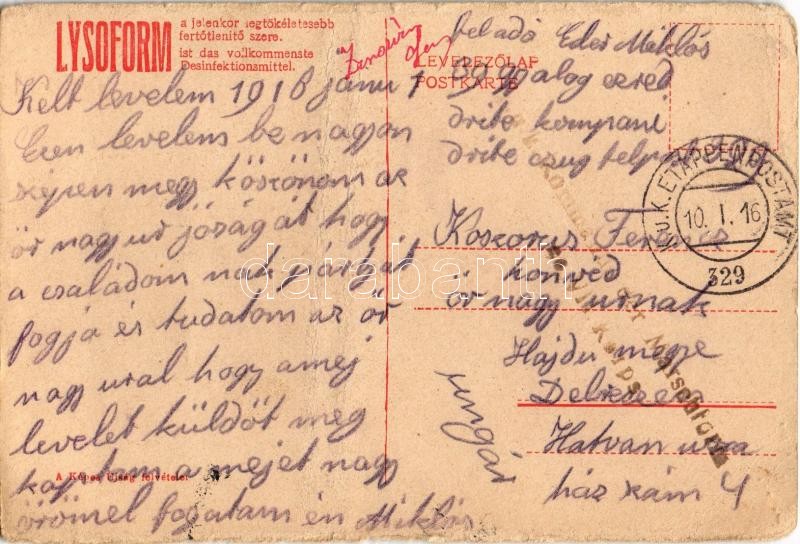 LYSOFORM
a jelenkor legtökéletesebb
fertőtlenitő szere.
ist das vollkommenste
Desinfektionsmittel.
LEVELEZŐLAP
POSTKARTE
Kelt levelem 1916 janu 1
Ezen levelem be nagyon
szépen meg köszönom az
őr nagy ur jóság át hogy
a családom nak párgát
fogja és tudatom az őr
nagy ural hogy amej
levelet küldöt meg
kap tam a mejet nagy
örömel fogatam én Miklós
A Képes Ujság felvételei
bel adó Eder Miklós
39 alog ezred
drite kompani
drite czug
K.u.K. ETAPPENPOSTAMT
10. I. 16
329
Koszorus Ferencz
honvéd
őr nagy urnak
Hajdu megye
Debreczen
Hatvan ucza
ház szám 4
ungár
darabanth